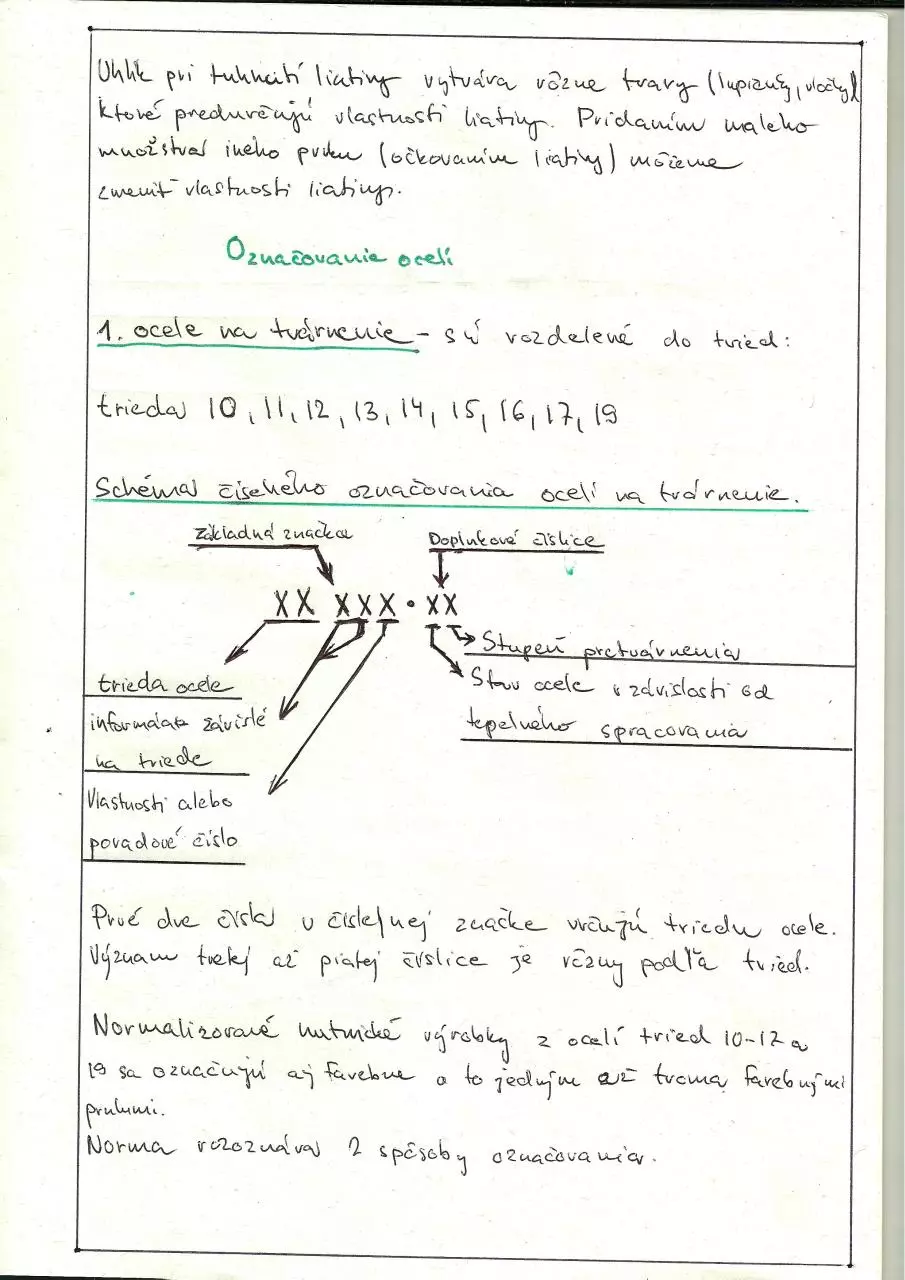 Uhlík pri tuhnutí liatiny vytvára rôzne tvary (lupienky, vločky)
ktoré predurčujú vlastnosti liatiny. Pridaním malého
množstva iného prvku (očkovaním liatiny) môžeme
zmeniť vlastnosti liatiny.
Označovanie ocelí
1. ocele na tvárnenie - sú rozdelené do tried:
trieda 10, 11, 12, 13, 14, 15, 16, 17, 19
Schéma číselného označovania ocelí na tvárnenie.
Základná značka Doplnkové číslice
XX XXX . XX
Stupeň pretvárnenia
trieda ocele
Stav ocele v závislosti od
tepelného spracovania
informácie závislé
na triede
Vlastnosti alebo
poradové číslo
Prvé dve čísla v číselnej značke určujú triedu ocele.
Význam tretej až piatej číslice je rôzny podľa tried.
Normalizované hutnícké výrobky z ocelí tried 10-17 a
19 sa označujú aj farebne a to jedným až troma farebnými
pruhmi.
Norma rozoznáva 2 spôsoby označovania.